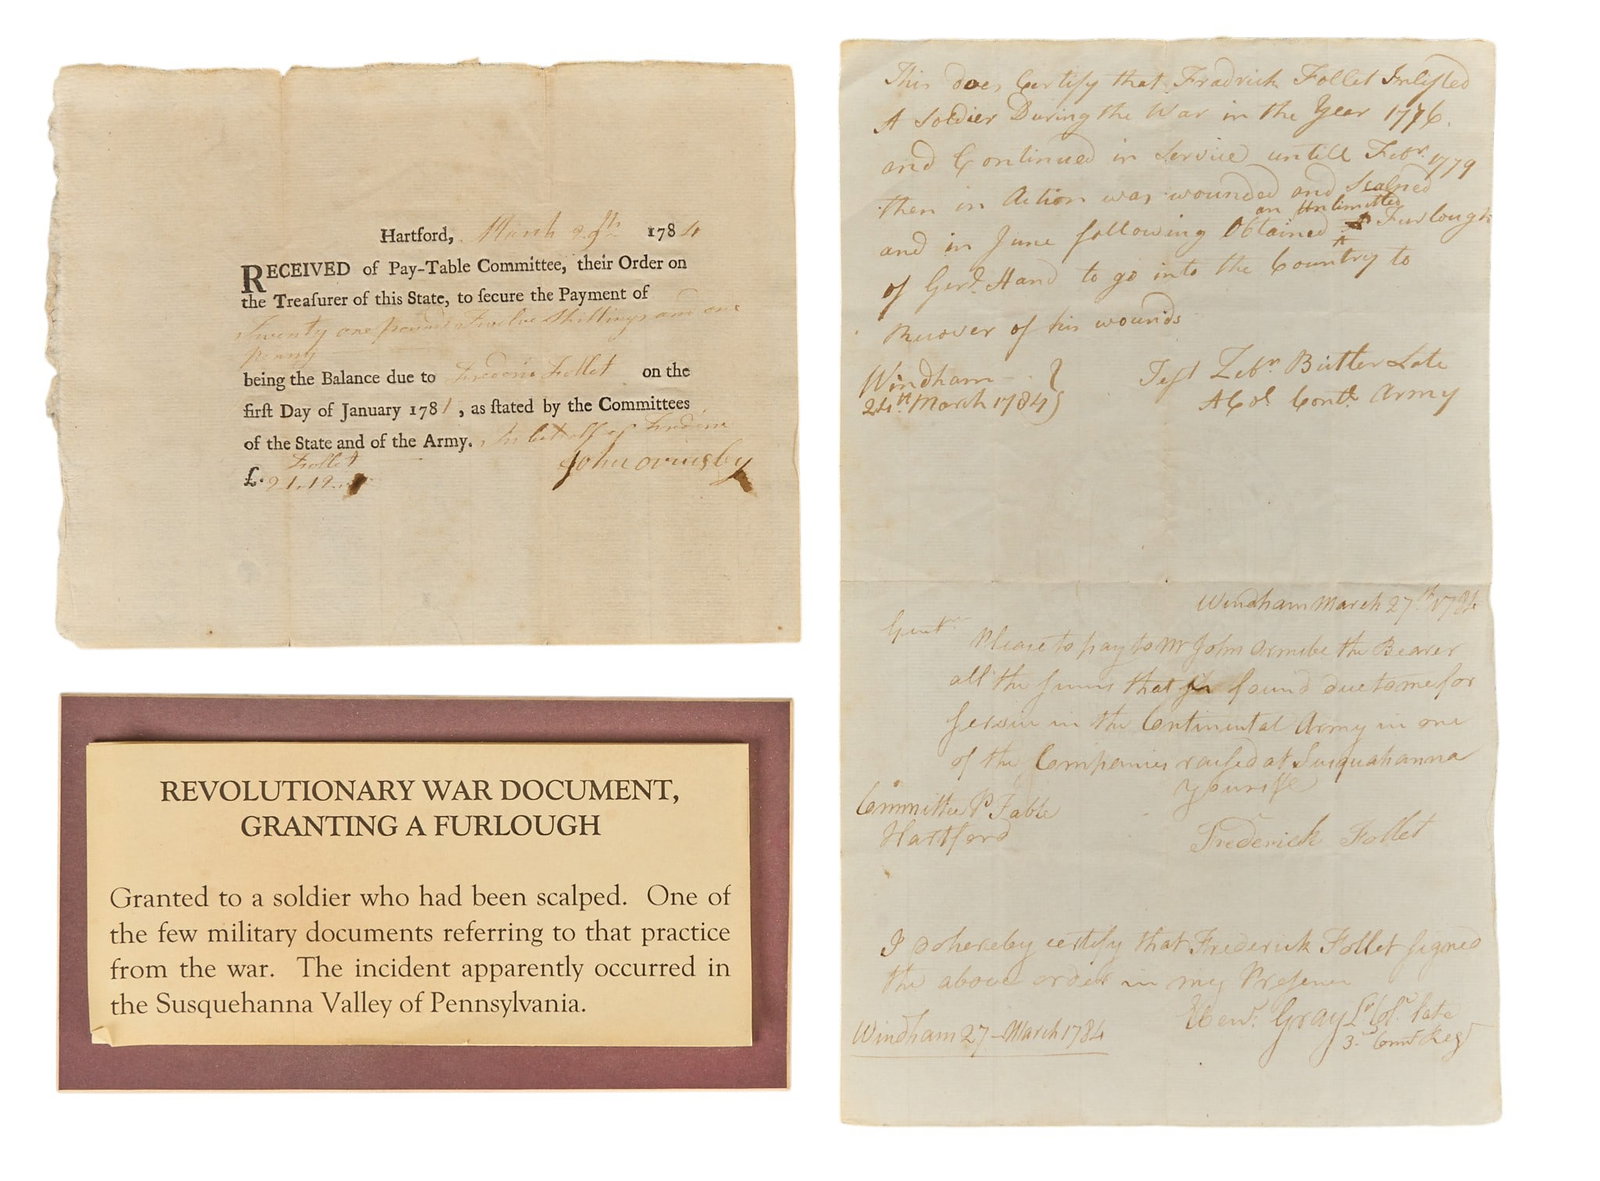 Hartford, March 29th 1784
RECEIVED of Pay-Table Committee, their Order on
the Treaſurer of this State, to ſecure the Payment of
Twenty one pounds Twelve Shillings and one
penny
being the Balance due to Frederic Follet on the
firſt Day of January 1781, as ſtated by the Committees
of the State and of the Army. In behalf of Frederic
Follet
£. 21.12. John Ormsby
REVOLUTIONARY WAR DOCUMENT,
GRANTING A FURLOUGH
Granted to a soldier who had been scalped. One of
the few military documents referring to that practice
from the war. The incident apparently occurred in
the Susquehanna Valley of Pennsylvania.
This does Certify that Fradrick Follet Inlisted
A Soldier During the War in the Year 1776.
and Continued in Service untill Febr. 1779
then in Action was wounded and Scalped
an Unlimitted
and in June following Obtained Furlough
of Genl. Hand to go into the Country to
Recover of his wounds
Windham Test Zebn. Butler Late
24th March 1784 A Col. Contl. Army
Windham March 27th 1784
Gentn.
Please to pay to Mr John Ormsbe the Bearer
all the sums that is found due to me for
Service in the Continental Army in one
of the Companies raised at Susquahanna
Yours
Committee P Table
Hartford Frederick Follet
I do hereby certify that Frederick Follet signed
the above order in my Presence
Eben. Gray Lt Col. late
Windham 27 March 1784 3d Connt Regt